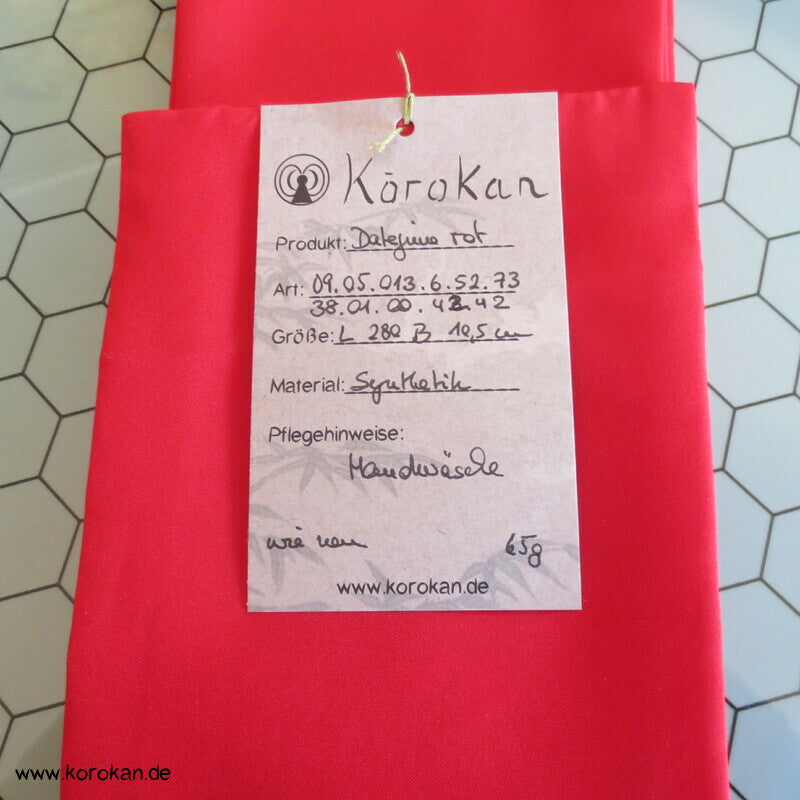 Kōrokan
Produkt: Datejime rot
Art: 09.05.013.6.52.73
38.01.00.42.42
Größe: L 280 B 10,5 cm
Material: Synthetik
Pflegehinweise:
Handwäsche
wie neu 65g
www.korokan.de
www.korokan.de